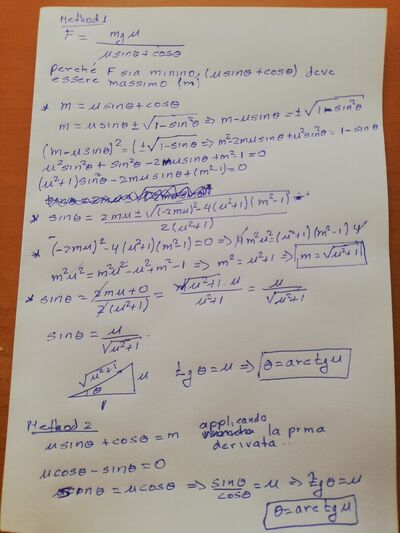 Method 1
F = mgμ / (μsinθ+cosθ)
perché F sia minino, (μsinθ+cosθ) deve
essere massimo (m)
* m = μsinθ+cosθ
m = μsinθ ± √(1-sin²θ) ⇒ m-μsinθ = ±√(1-sin²θ)
(m-μsinθ)² = (±√(1-sinθ) ⇒ m²-2mμsinθ+μ²sin²θ = 1-sinθ
μ²sin²θ + sin²θ - 2mμsinθ + m²-1 = 0
(μ²+1)sin²θ - 2mμsinθ + (m²-1) = 0
* sinθ = (2mμ ± √((-2mμ)²-4(μ²+1)(m²-1))) / 2(μ²+1)
* (-2mμ)²-4(μ²+1)(m²-1) = 0 ⇒ 4m²μ²(μ²+1)(m²-1)4
m²μ² = m²μ²-μ²+m²-1 ⇒ m² = μ²+1 ⇒ m = √(μ²+1)
* sinθ = (2mμ+0) / 2(μ²+1) = (√(μ²+1)·μ) / (μ²+1) = μ / √(μ²+1)
sinθ = μ / √(μ²+1) .
√(μ²+1) μ θ 1
tgθ = μ ⇒ θ = arctgμ
Method 2
μsinθ + cosθ = m
applicando
la prma
derivata..
μcosθ - sinθ = 0
sinθ = μcosθ ⇒ sinθ/cosθ = μ ⇒ tgθ = μ
θ = arctgμ